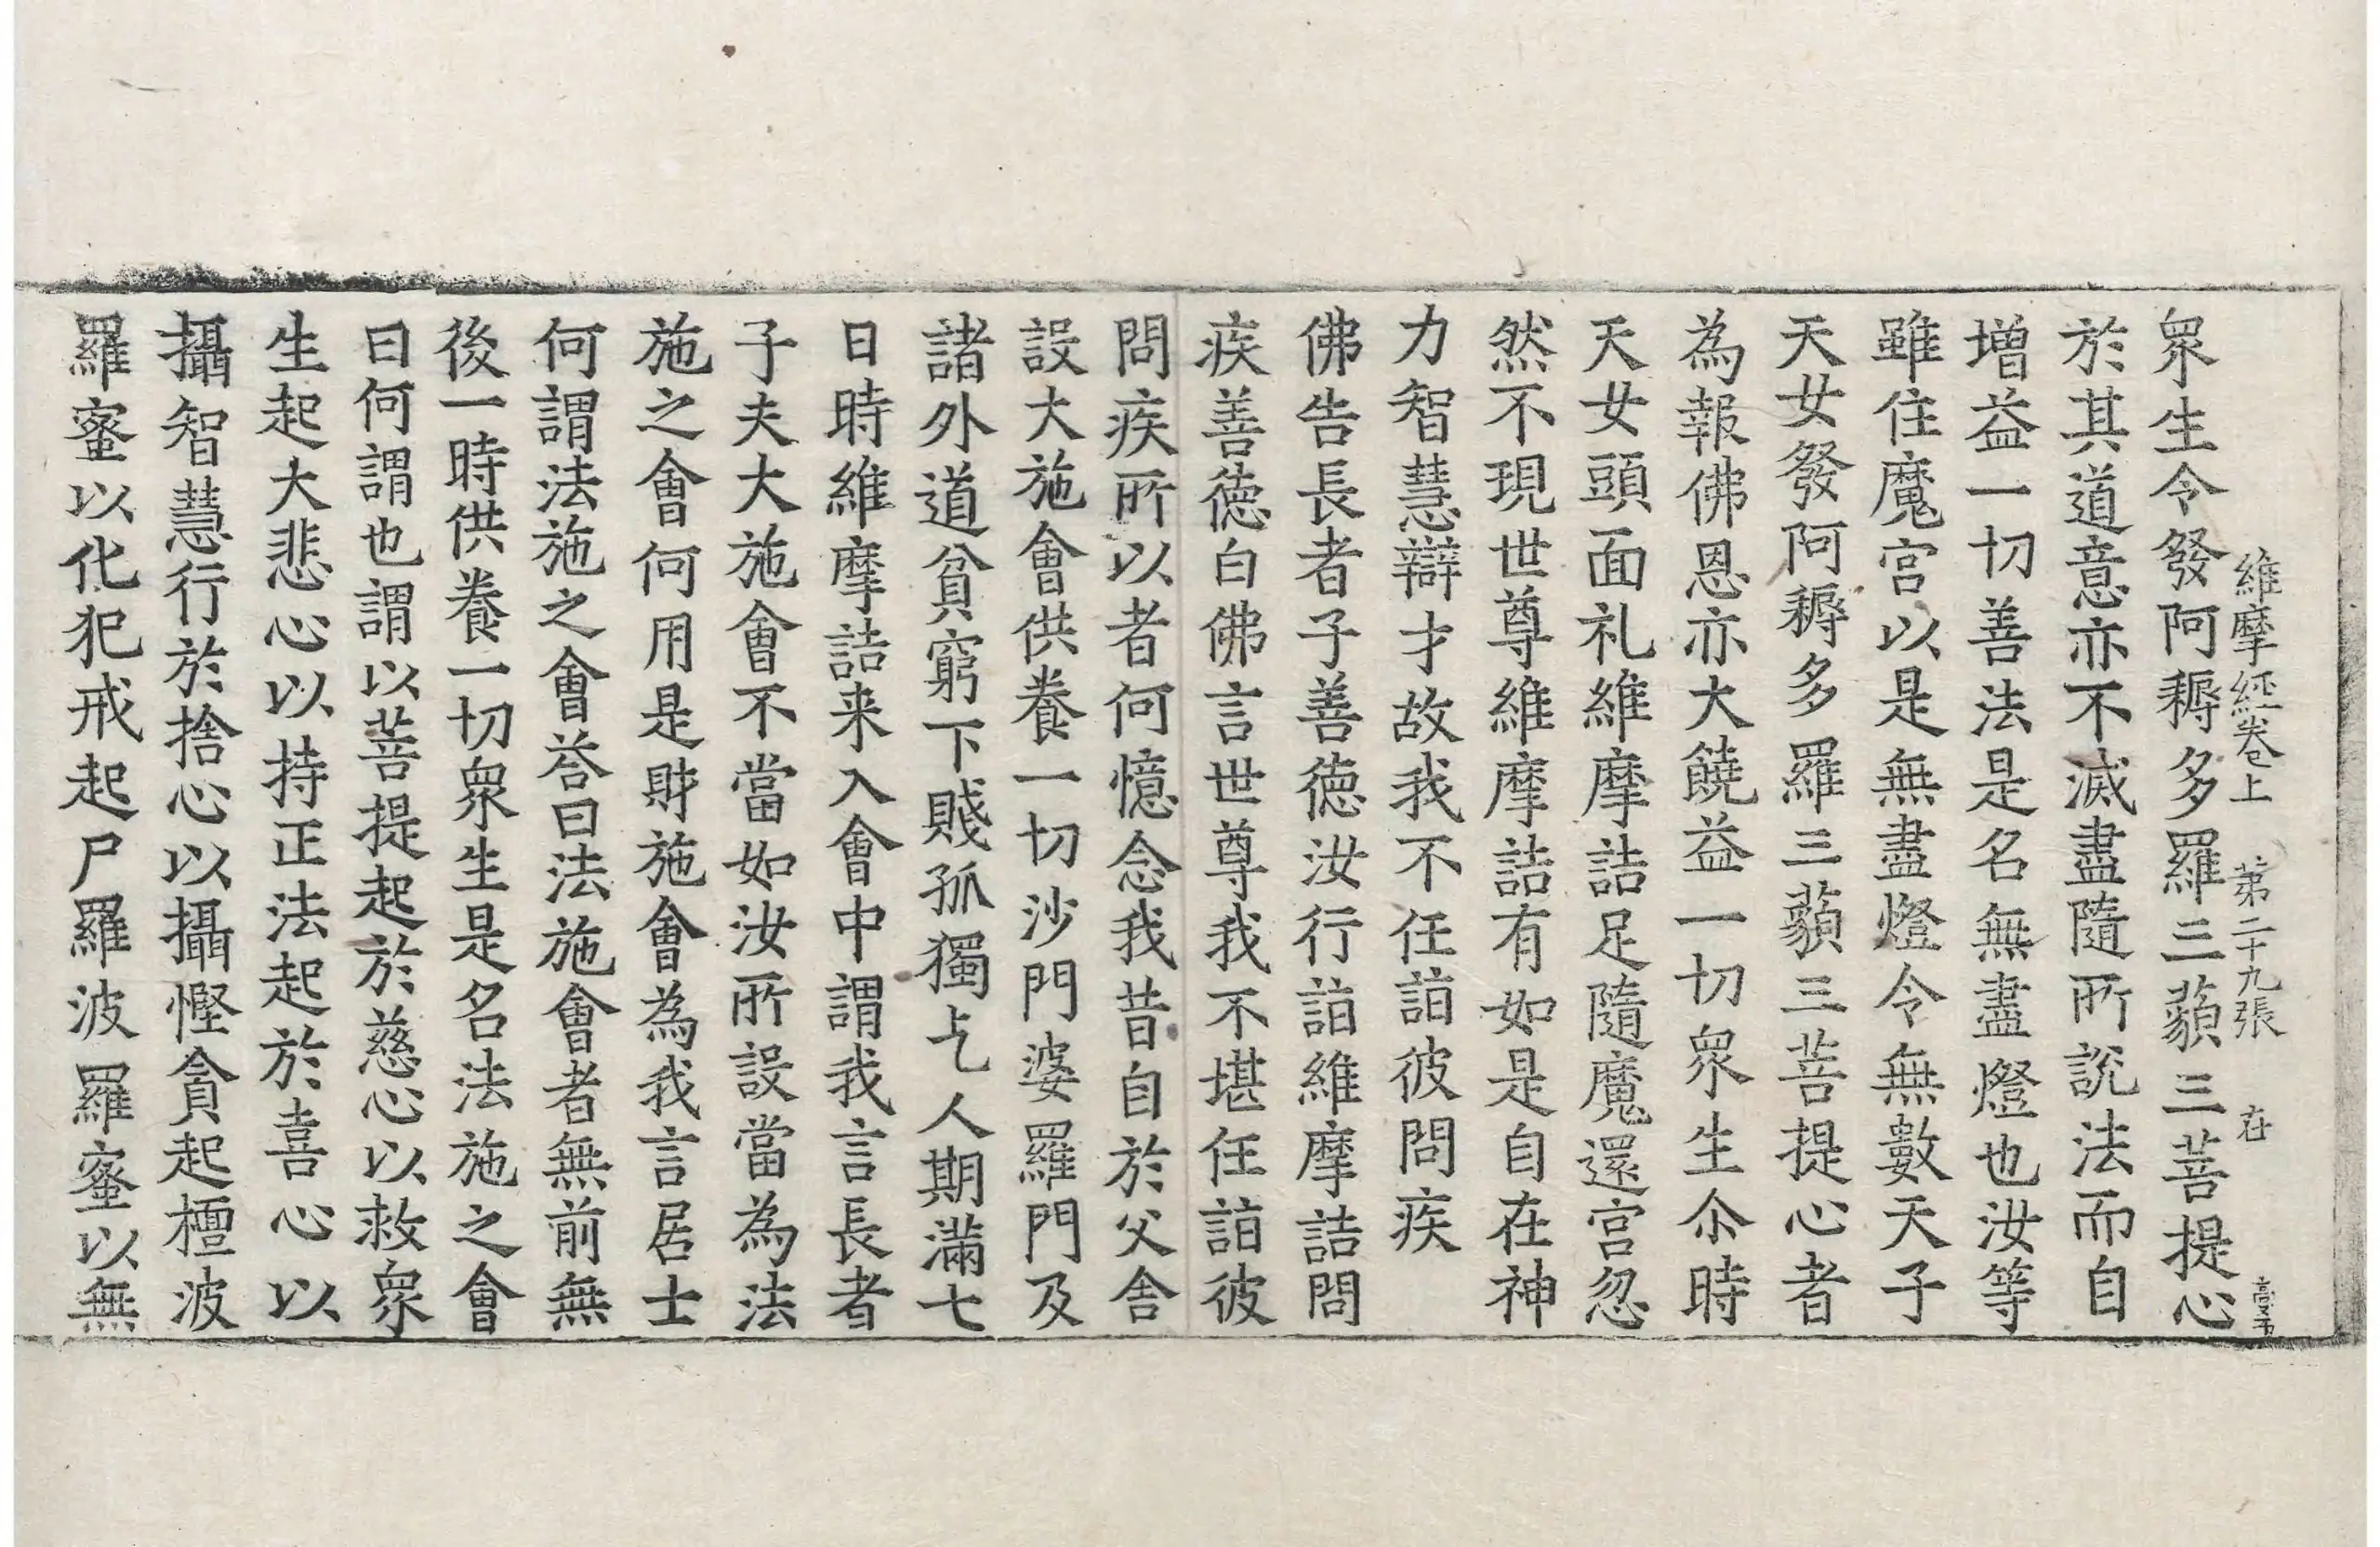 維摩經卷上 第二十九張 在
眾生令發阿耨多羅三藐三菩提心
於其道意亦不滅盡隨所說法而自
增益一切善法是名無盡燈也汝等
雖住魔宮以是無盡燈令無數天子
天女發阿耨多羅三藐三菩提心者
為報佛恩亦大饒益一切眾生尒時
天女頭面礼維摩詰足隨魔還宮忽
然不現世尊維摩詰有如是自在神
力智慧辯才故我不任詣彼問疾
佛告長者子善德汝行詣維摩詰問
疾善德白佛言世尊我不堪任詣彼
問疾所以者何憶念我昔自於父舍
設大施會供養一切沙門婆羅門及
諸外道貧窮下賤孤獨乞人期滿七
日時維摩詰来入會中謂我言長者
子夫大施會不當如汝所設當為法
施之會何用是財施會為我言居士
何謂法施之會荅曰法施會者無前無
後一時供養一切眾生是名法施之會
曰何謂也謂以菩提起於慈心以救眾
生起大悲心以持正法起於喜心以
攝智慧行於捨心以攝慳貪起檀波
羅蜜以化犯戒起尸羅波羅蜜以無